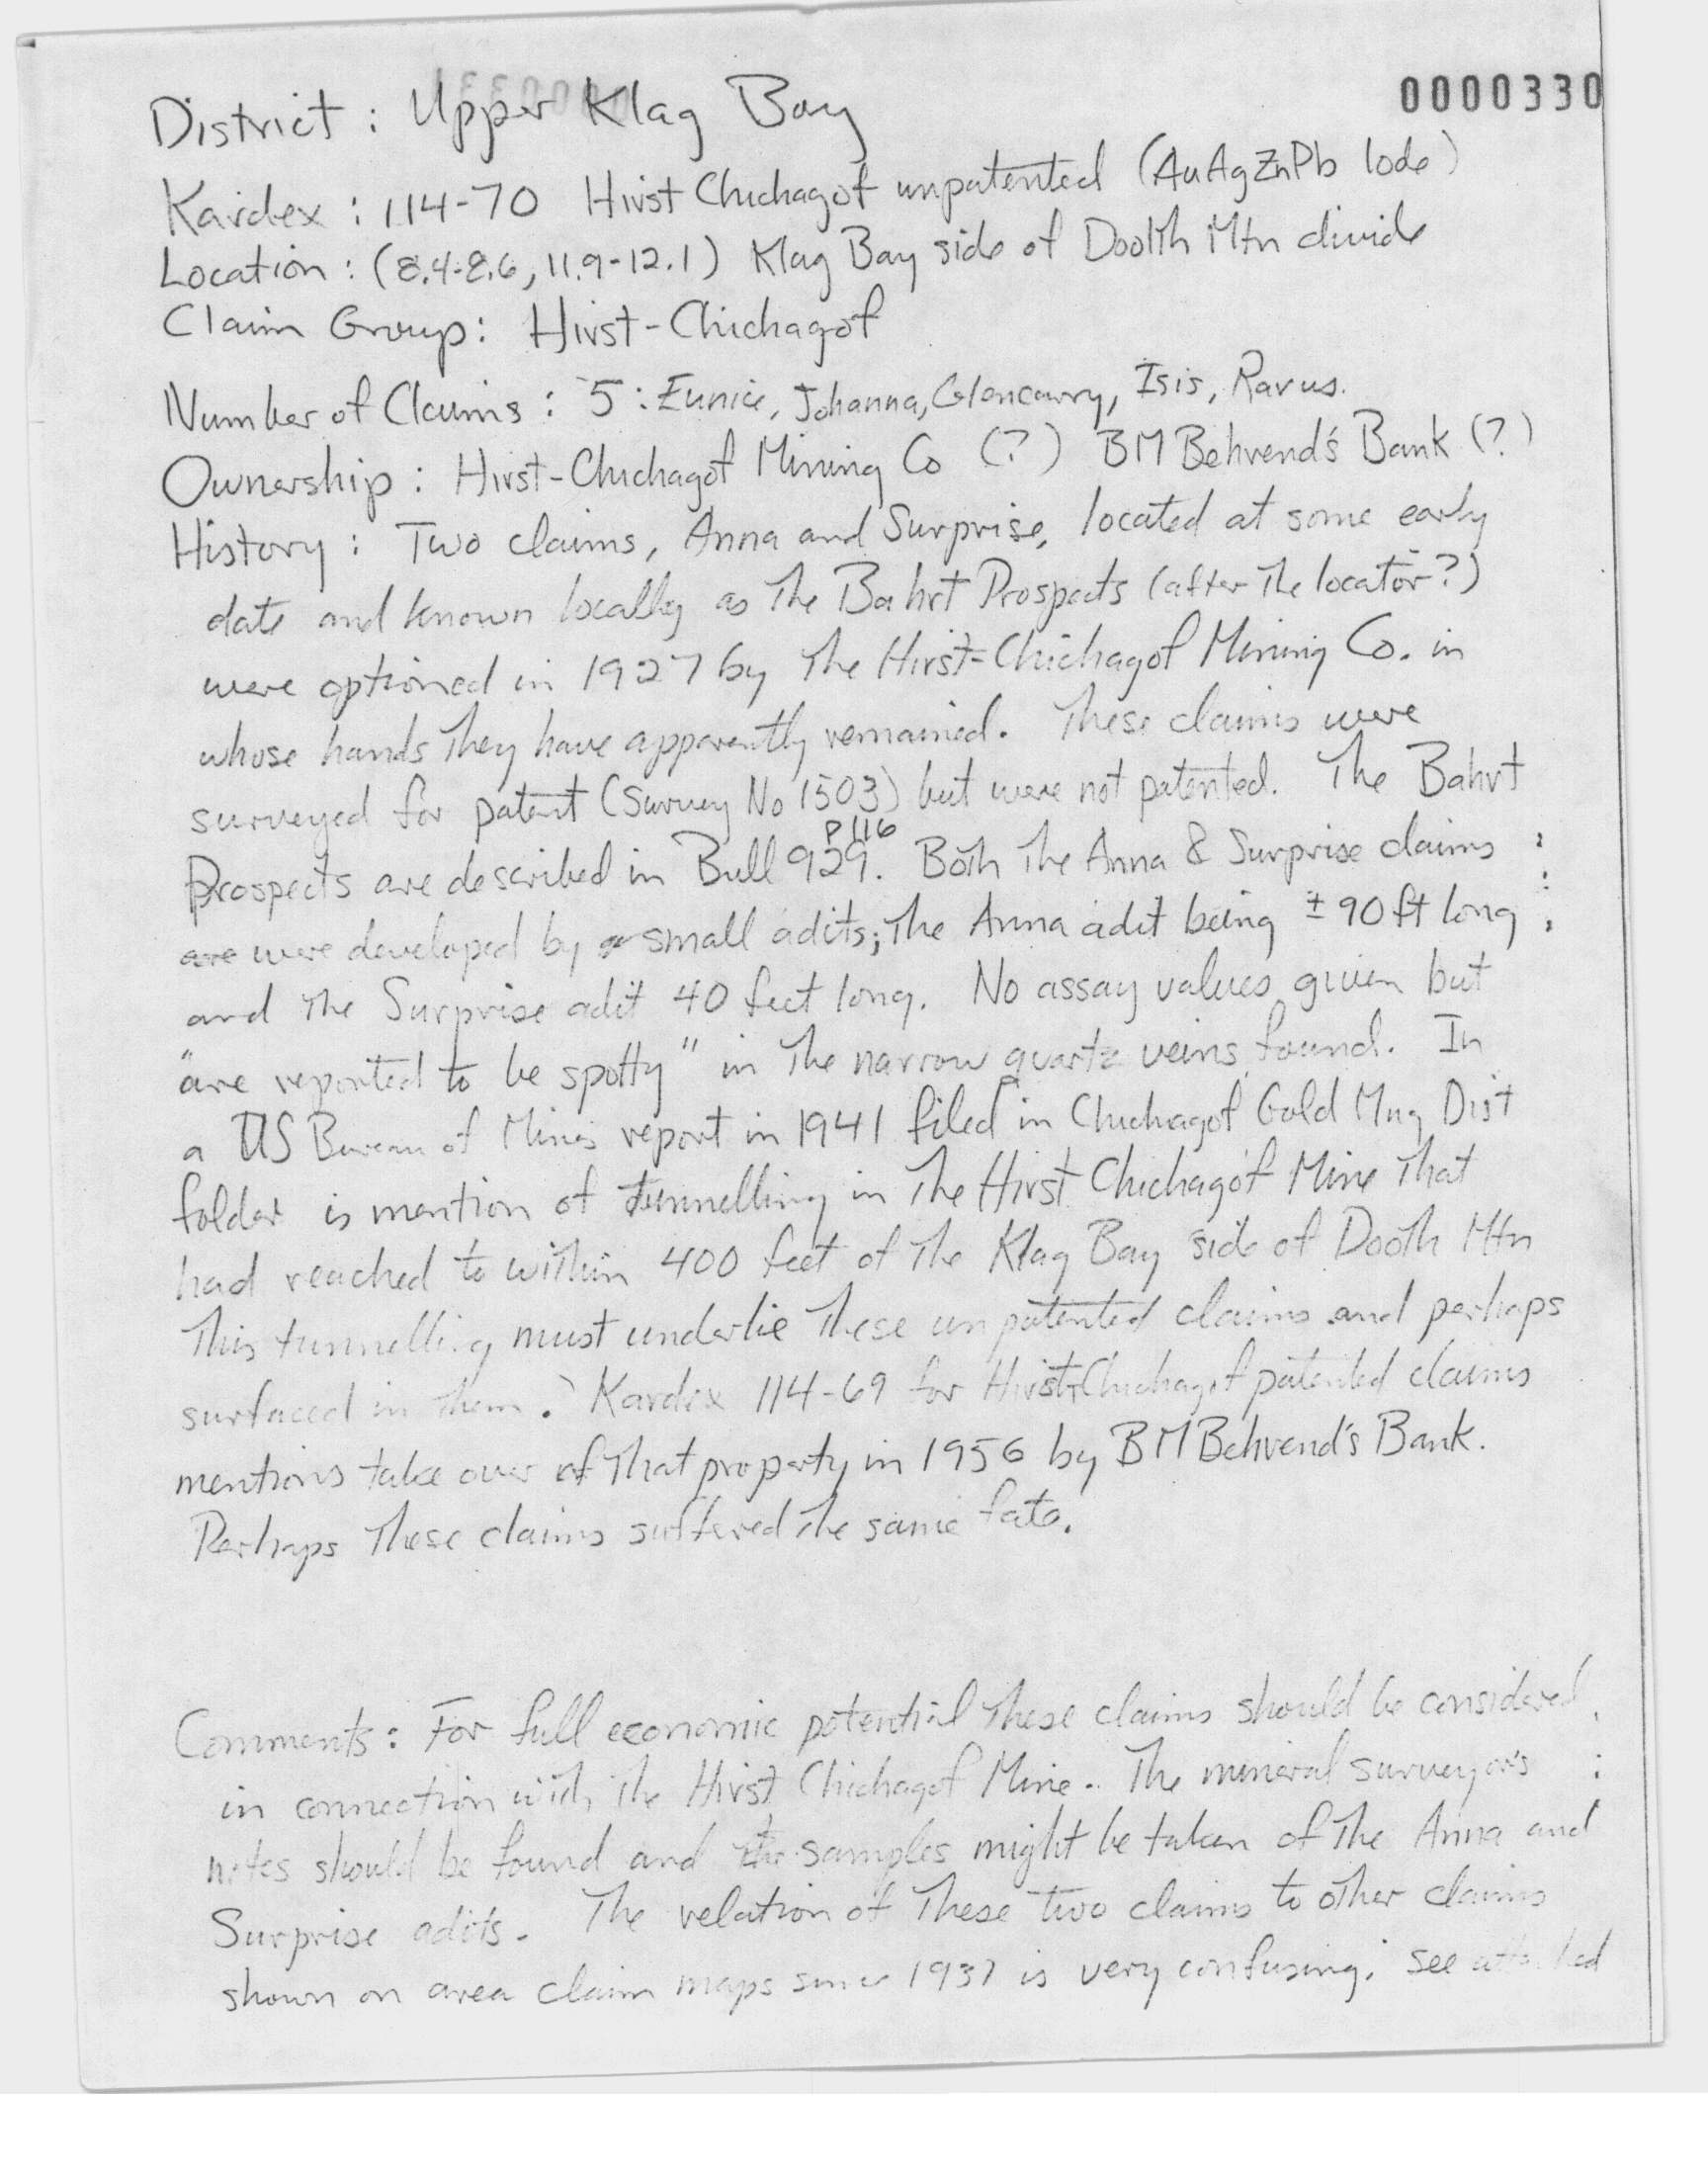 0000330
District : Upper Klag Bay
Kardex : 114-70 Hirst Chichagof unpatented (AuAgZnPb lode)
Location : (8.4-8.6, 11.9-12.1) Klag Bay side of Doolth Mtn divide
Claim Group : Hirst-Chichagof
Number of Claims : 5 : Eunice, Johanna, Glencarry, Isis, Ravus.
Ownership : Hirst-Chichagof Mining Co (?) BM Behrend's Bank (?)
History : Two claims, Anna and Surprise, located at some early
date and known locally as The Bahrt Prospects (after The locator?)
were optioned in 1927 by The Hirst-Chichagof Mining Co. in
whose hands They have apparently remained. These claims were
surveyed for patent (Survey No 1503) but were not patented. The Bahrt
P 116
Prospects are described in Bull 929. Both The Anna & Surprise claims
are were developed by a small adits; The Anna adit being ± 90 ft long
and The Surprise adit 40 feet long. No assay values given but
"are reported to be spotty" in The narrow quartz veins found. In
a US Bureau of Mines report in 1941 filed in Chichagof Gold Mng Dist
folder is mention of tunnelling in The Hirst Chichagof Mine That
had reached to within 400 feet of The Klag Bay side of Dooth Mtn
This tunnelling must underlie These unpatented claims and perhaps
surfaced in Them. Kardex 114-69 for Hirst-Chichagof patented claims
mentions take over of That property in 1956 by BM Behrend's Bank.
Perhaps These claims suffered The same fate.
Comments : For full economic potential These claims should be considered
in connection with The Hirst Chichagof Mine. The mineral surveyor's
notes should be found and the samples might be taken of The Anna and
Surprise adits. The relation of These two claims to other claims
shown on area claim maps since 1937 is very confusing; see attached